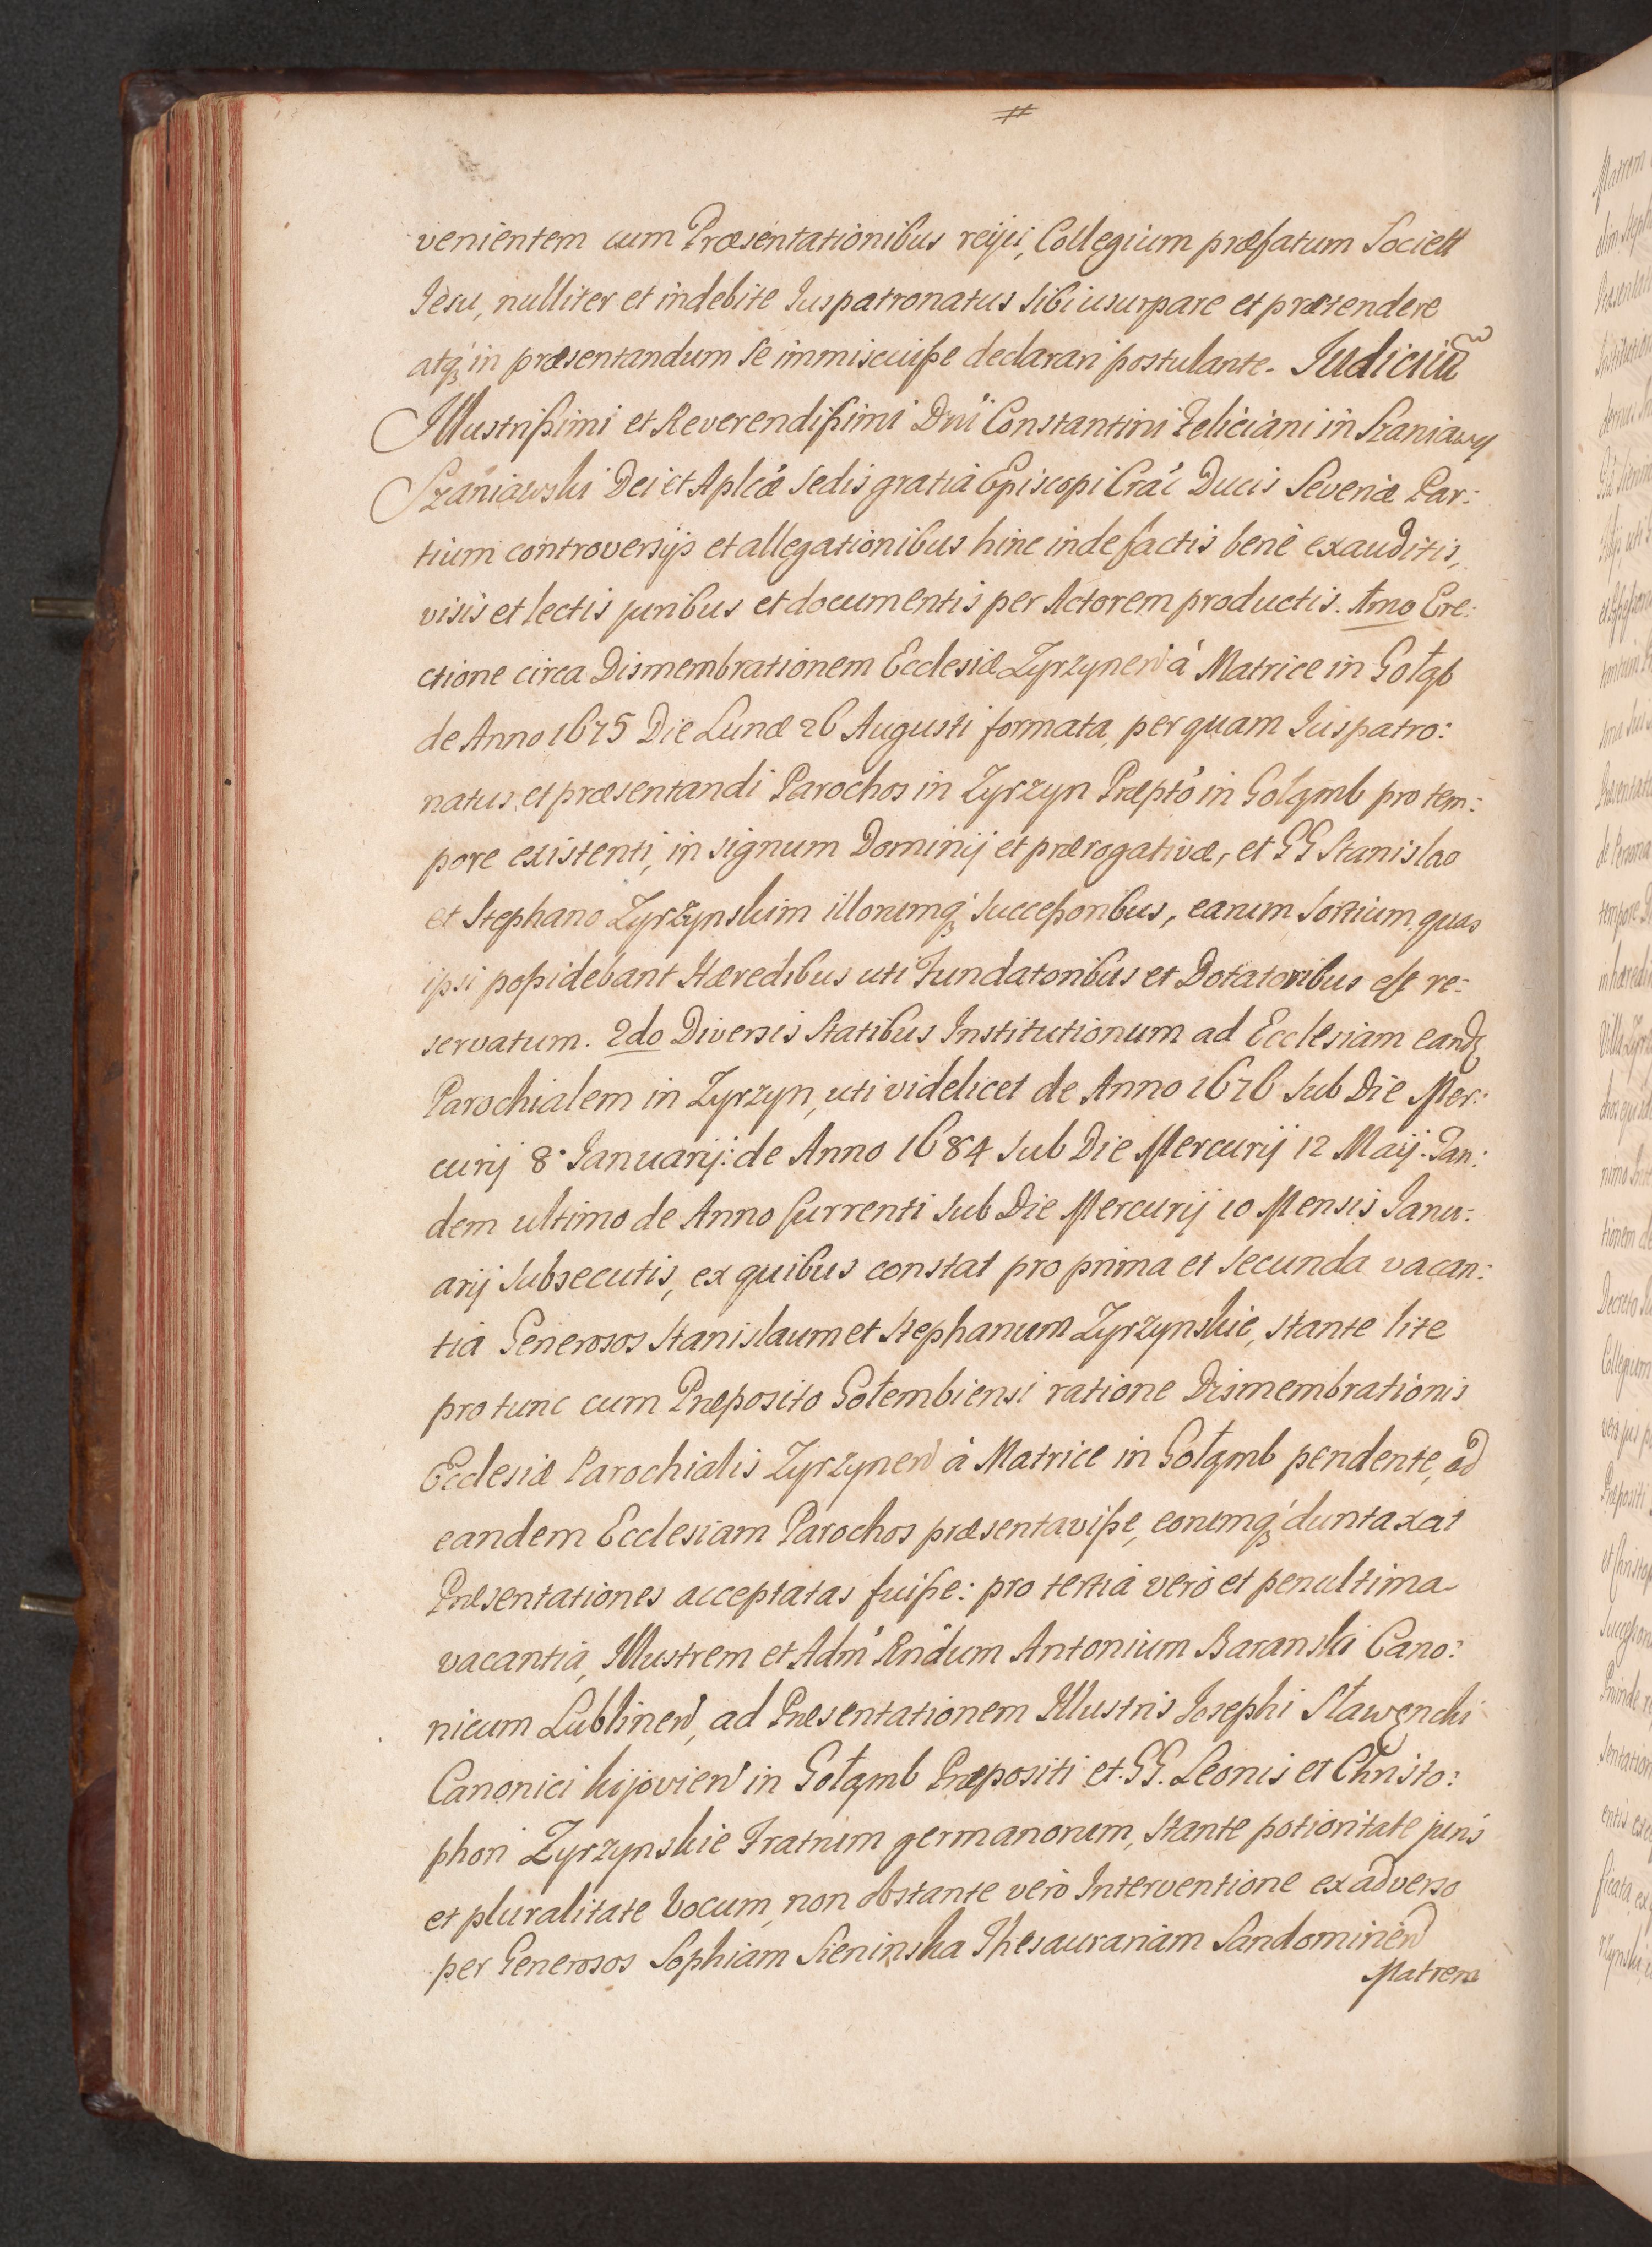 #
venientem cum Præsentationibus reijci, Collegium præfatum Societt
Jesu, nulliter et indebite Iuspatronatus sibi usurpare et prætendere
atq3 in præsentandum se immiscuiße declarari postulante. Judiciũ
Illustrißimi et Reverendißimi Dni Constantini Feliciani in Szaniawy
Szaniawski Dei et Aplcæ Sedis gratia Episcopi Crac Ducis Severiæ Par:
tium controversijs et allegationibus hinc inde factis bene exauditis,
visis et lectis juribus et documentis per Actorem productis. 1mo Ere:
ctione circa Dismembrationem Ecclesiæ Zyrzynen à Matrice in Gołąb
de Anno 1675 Die Lunæ 26 Augusti formata, per quam Iuspatro:
natus et præsentandi Parochos in Zyrzyn Præpto in Gołąmb pro tem:
pore existenti, in signum Dominij et prærogativæ, et GG Stanislao
et Stephano Zyrzynskim illorumq3 Succeßoribus, earum Sortium quas
ipsi poßidebant Hæredibus uti Fundatoribus et Dotatoribus est re:
servatum. 2do Diversis Statibus Institutionum ad Ecclesiam eand3
Parochialem in Zyrzyn, uti videlicet de Anno 1676 Sub Die Mer:
curij 8. Januarij: de Anno 1684 Sub Die Mercurij 12 Maij. Tan:
dem ultimo de Anno Currenti Sub Die Mercurij 10 Mensis Janu:
arij Subsecutis, ex quibus constat pro prima et secunda vacan:
tia Generosos Stanislaum et Stephanum Zyrzynskie, stante lite
pro tunc cum Præposito Gołembiensi ratione Dismembrationis
Ecclesiæ Parochialis Zyrzynen à Matrice in Gołąmb pendente, ad
eandem Ecclesiam Parochos præsentaviße, eorumq3 duntaxat
Præsentationes acceptatas fuiße: pro tertia verò et penultima
vacantia, Illustrem et Adm Rndum Antonium Baranski Cano:
nicum Lublinen, ad Præsentationem Illustris Josephi Stawęncki
Canonici kijovien in Gołąmb Præpositi et GG. Leonis et Christo:
phori Zyrzynskie Fratrum germanorum, stante potioritate juris
et pluralitate Vocum, non obstante verò Interventione ex adverso
per Generosos Sophiam Sieninska Thesaurariam Sandomirien
Matrem